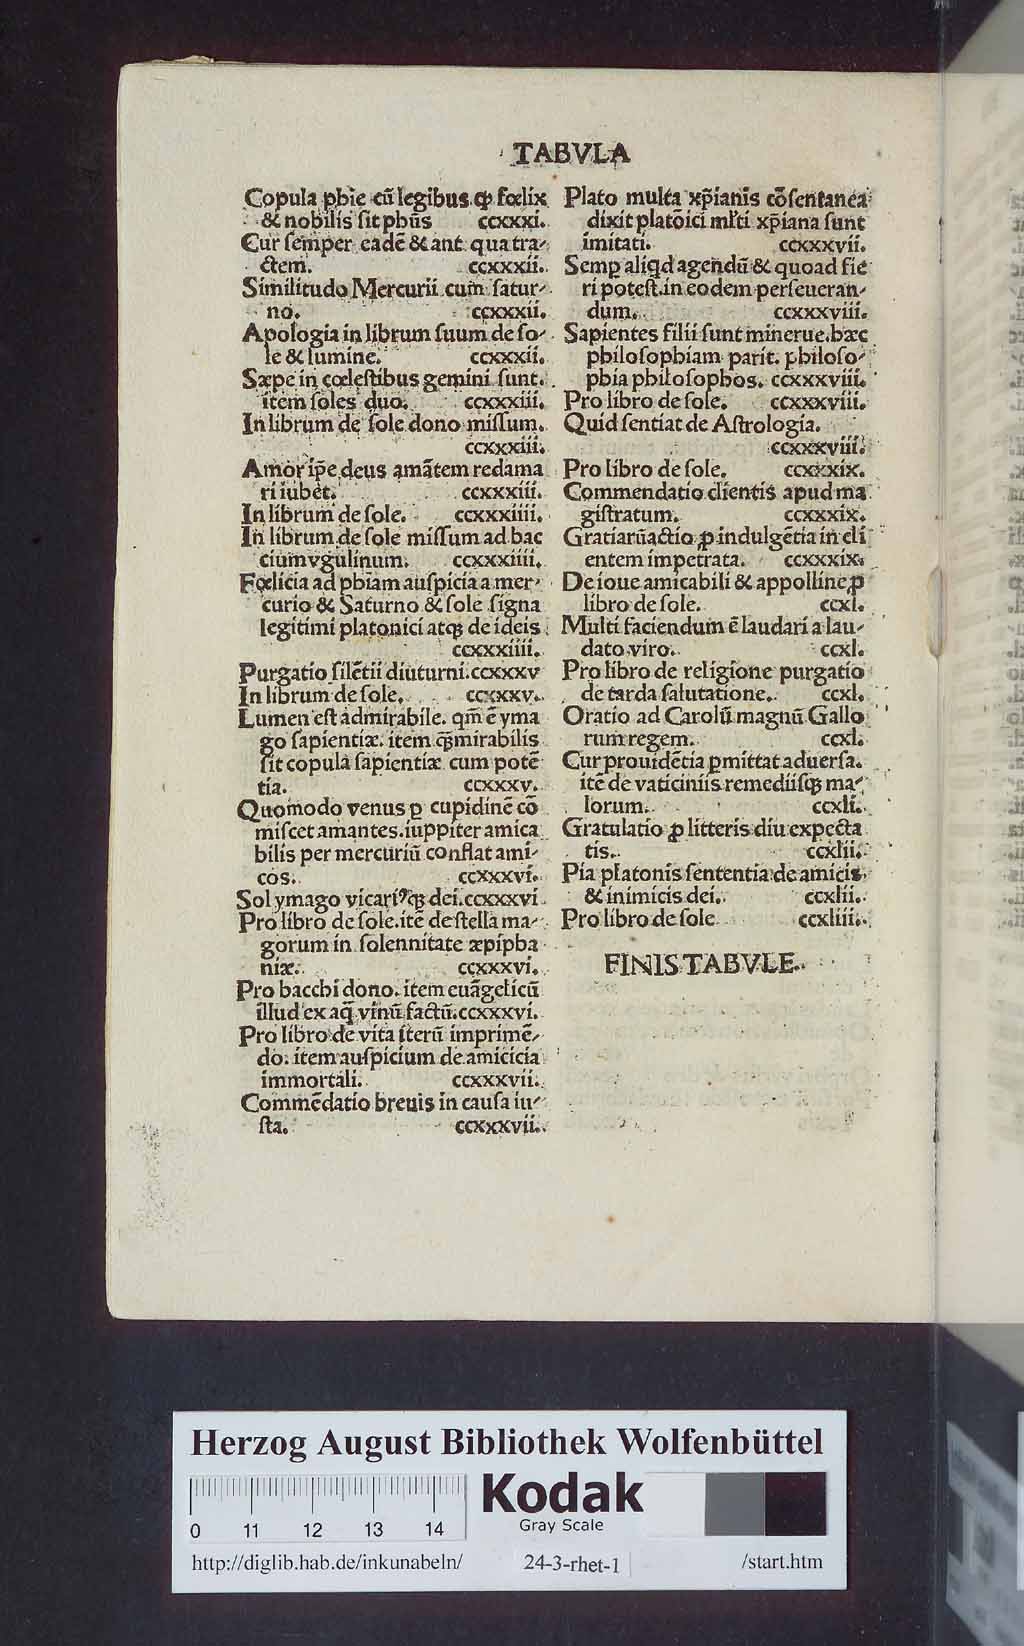 TABVLA
Copula pħie cū legibus. ꝙ fœlix
& nobilis sit pħūs ccxxxi.
Cur semper eadē & ant. qua tra-
ctem. ccxxxii.
Similitudo Mercurii cum satur-
no. ccxxxii.
Apologia in librum suum de so-
le & lumine. ccxxxii.
Sæpe in cœlestibus gemini sunt.
item soles duo. ccxxxiii.
In librum de sole dono missum.
ccxxxiii.
Amor ip̄e deus amātem redama
ri iubet. ccxxxiii.
In librum de sole. ccxxxiiii.
In librum de sole missum ad bac
cium vgulinum. ccxxxiiii.
Fœlicia ad phiam auspicia a mer-
curio & Saturno & sole signa
legitimi platonici atqꝫ de ideis
ccxxxiiii.
Purgatio silētii diuturni. ccxxxv
In librum de sole. ccxxxv.
Lumen est admirabile. qm̄ ē yma
go sapientiæ. item ꝙ̄ mirabilis
sit copula sapientiæ cum potē
tia. ccxxxv.
Quomodo venus ꝑ cupidinē cō
miscet amantes. iuppiter amica
bilis per mercuriū conflat ami-
cos. ccxxxvi.
Sol ymago vicariꝰqꝫ dei. ccxxxvi
Pro libro de sole. itē de stella ma-
gorum in solennitate æpipha
niæ. ccxxxvi.
Pro bacchi dono. item euāgelicū
illud ex aq̄ vinū factū. ccxxxvi.
Pro libro de vita iterū imprimē-
do. item auspicium de amicicia
immortali. ccxxxvii.
Commēdatio breuis in causa iu-
sta. ccxxxvii.
Plato multa xp̄ianis cōsentanea
dixit platōici mľti xp̄iana sunt
imitati. ccxxxvii.
Semꝑ aliqd agendū & quoad fie
ri potest. in eodem perseueran-
dum. ccxxxviii.
Sapientes filii sunt minerue. hæc
philosophiam parit. philoso-
phia philosophos. ccxxxviii.
Pro libro de sole. ccxxxviii.
Quid sentiat de Astrologia.
ccxxxviii.
Pro libro de sole. ccxxxix.
Commendatio clientis apud ma
gistratum. ccxxxix.
Gratiarū actio ꝓ indulgētia in cli
entem impetrata. ccxxxix.
De ioue amicabili & appolline ꝓ
libro de sole. ccxl.
Multi faciendum ē laudari a lau-
dato viro. ccxl.
Pro libro de religione purgatio
de tarda salutatione. ccxl.
Oratio ad Carolū magnū Gallo
rum regem. ccxl.
Cur prouidētia ꝑmittat aduersa.
itē de vaticiniis remediisqꝫ ma-
lorum. ccxli.
Gratulatio ꝓ litteris diu expecta
tis. ccxlii.
Pia platonis sententia de amicis
& inimicis dei. ccxlii.
Pro libro de sole ccxliii.
FINIS TABVLE.
Herzog August Bibliothek Wolfenbüttel
0 11 12 13 14
Kodak
Gray Scale
http://diglib.hab.de/inkunabeln/ 24-3-rhet-1 /start.htm